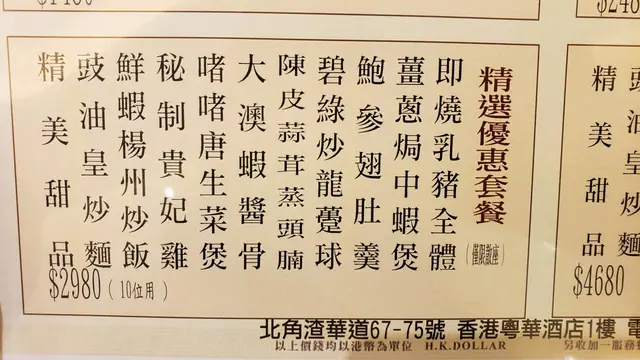 精選優惠套餐
(僅限散座)
即燒乳豬全體
薑蔥焗中蝦煲
鮑參翅肚羹
碧綠炒龍躉球
陳皮蒜茸蒸頭腩
大澳蝦醬骨
啫啫唐生菜煲
秘制貴妃雞
鮮蝦楊州炒飯
豉油皇炒麵
精美甜品
$2980 (10位用)
精美甜品
$4680
北角渣華道67-75號 香港粵華酒店1樓 電
以上價錢均以港幣為單位 H.K.DOLLAR 另收加一服務